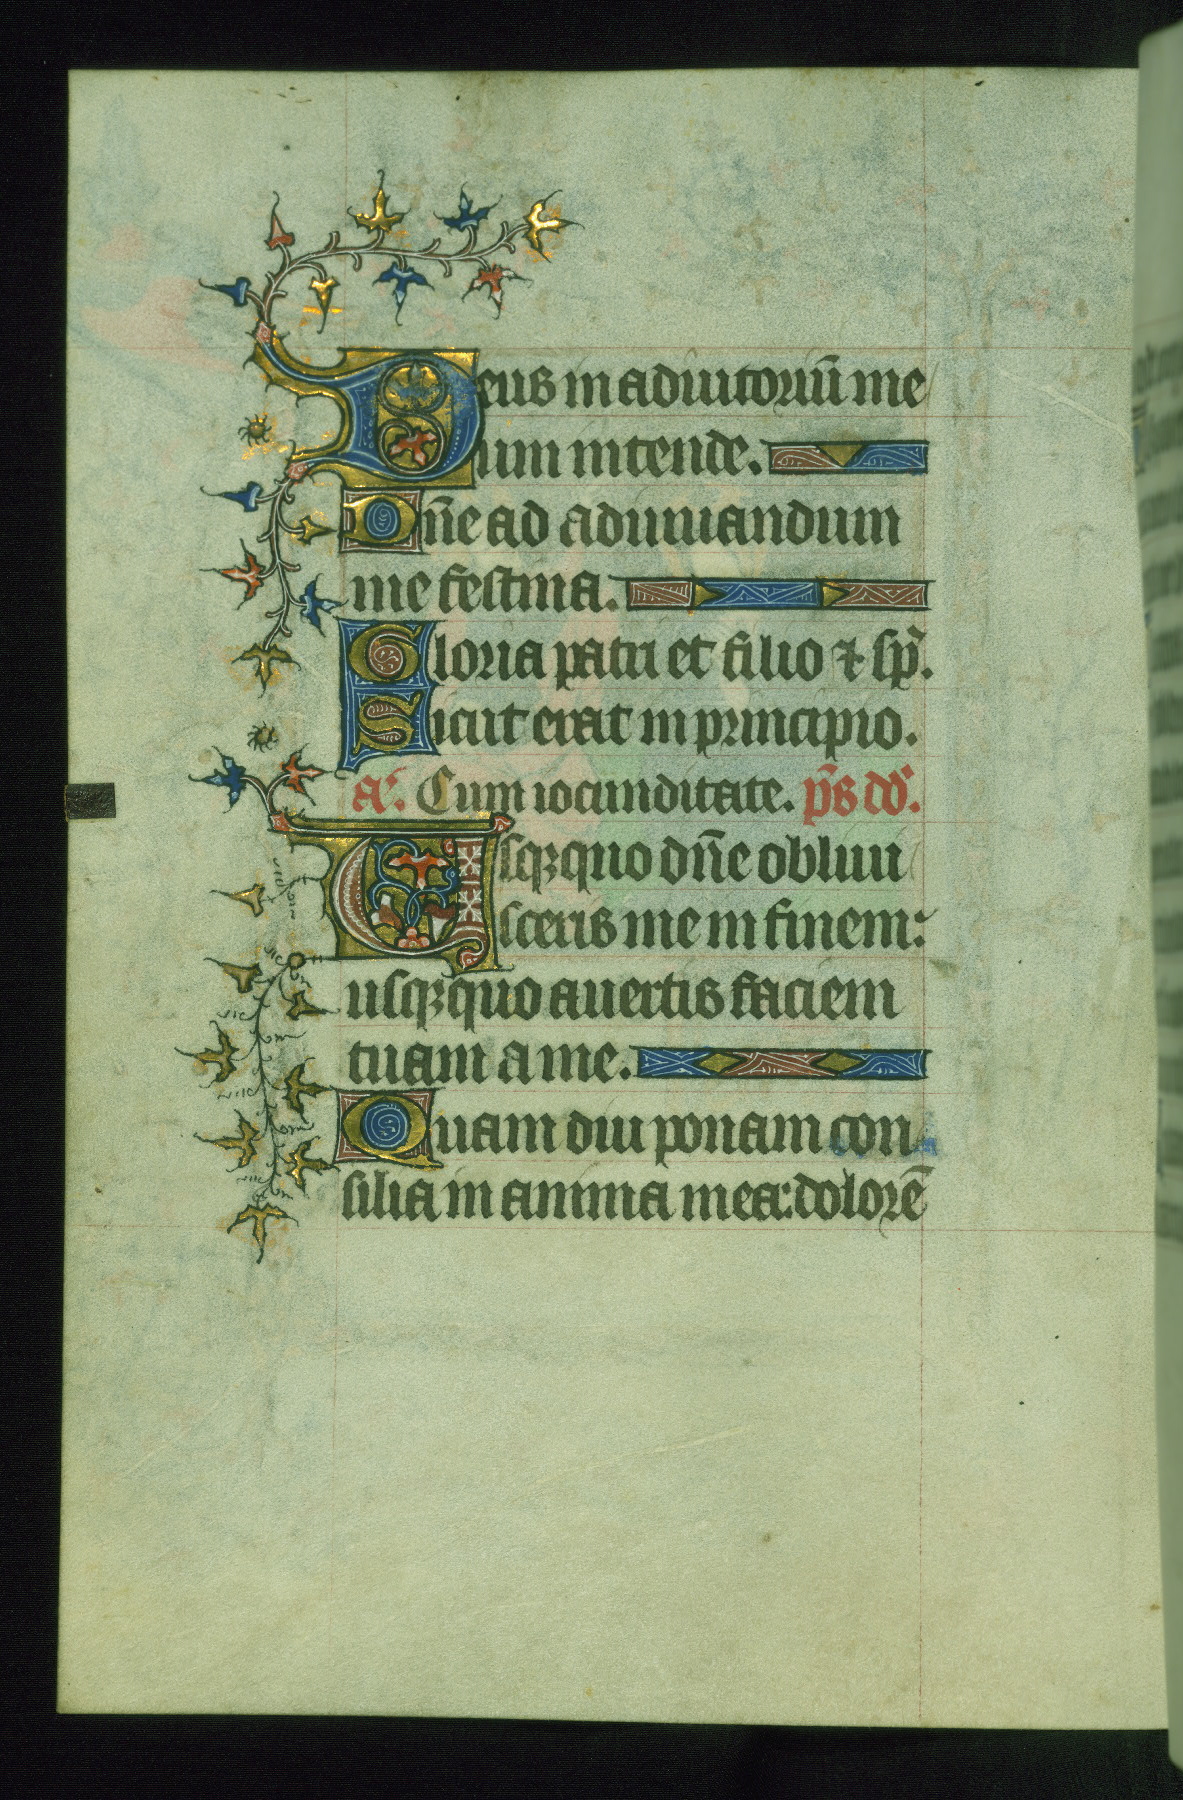 Deus in adiutoriū me
um intende.
Dn̄e ad adiuuandum
me festina.
Gloria patri et filio ⁊ sp̄.
Sicut erat in principio.
a͛. Cum iocunditate. p̄s dd̓.
Usqꝫquo dn̄e obliui
sceris me in finem:
usqꝫquo auertis faciem
tuam a me.
Quam diu ponam con
silia in anima mea: dolorē